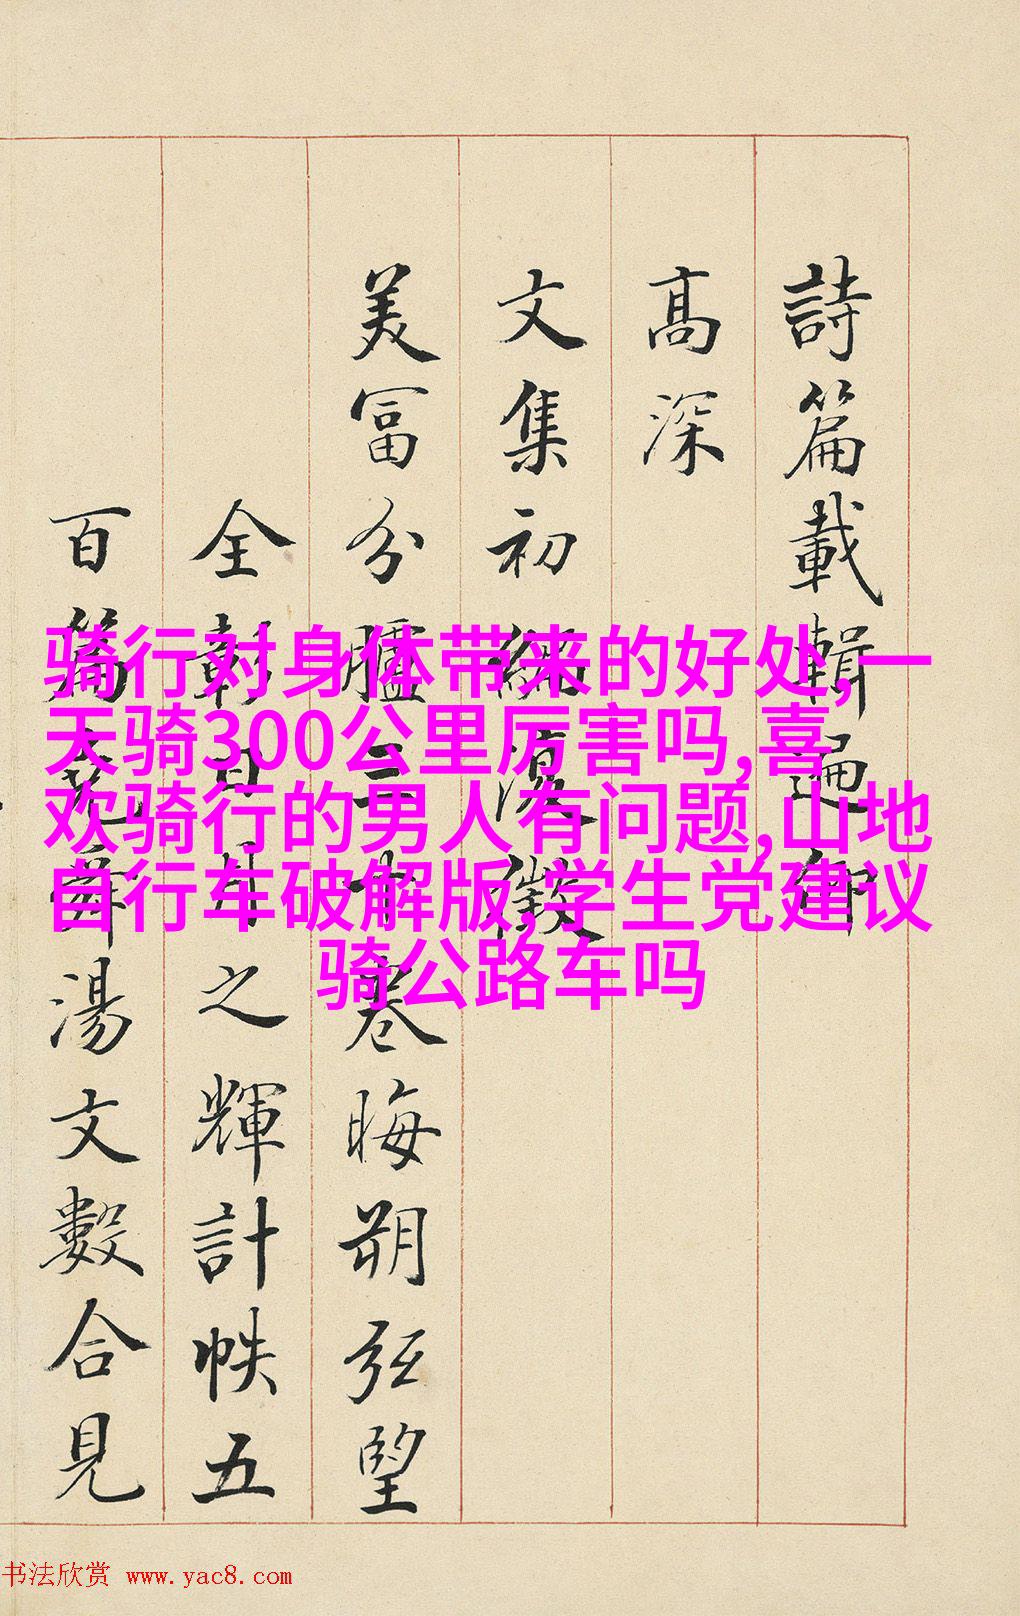 詩篇載輯遍仰
高深
文集初編復徵
美富分臚三十卷晦朔弦望
全彰日月之輝計帙五
百篇堯舜湯文數合見
骑行对身体带来的好处,一
天骑300公里厉害吗,喜
欢骑行的男人有问题,山地
自行车破解版,学生党建议
骑公路车吗
书法欣赏 www.yac8.com